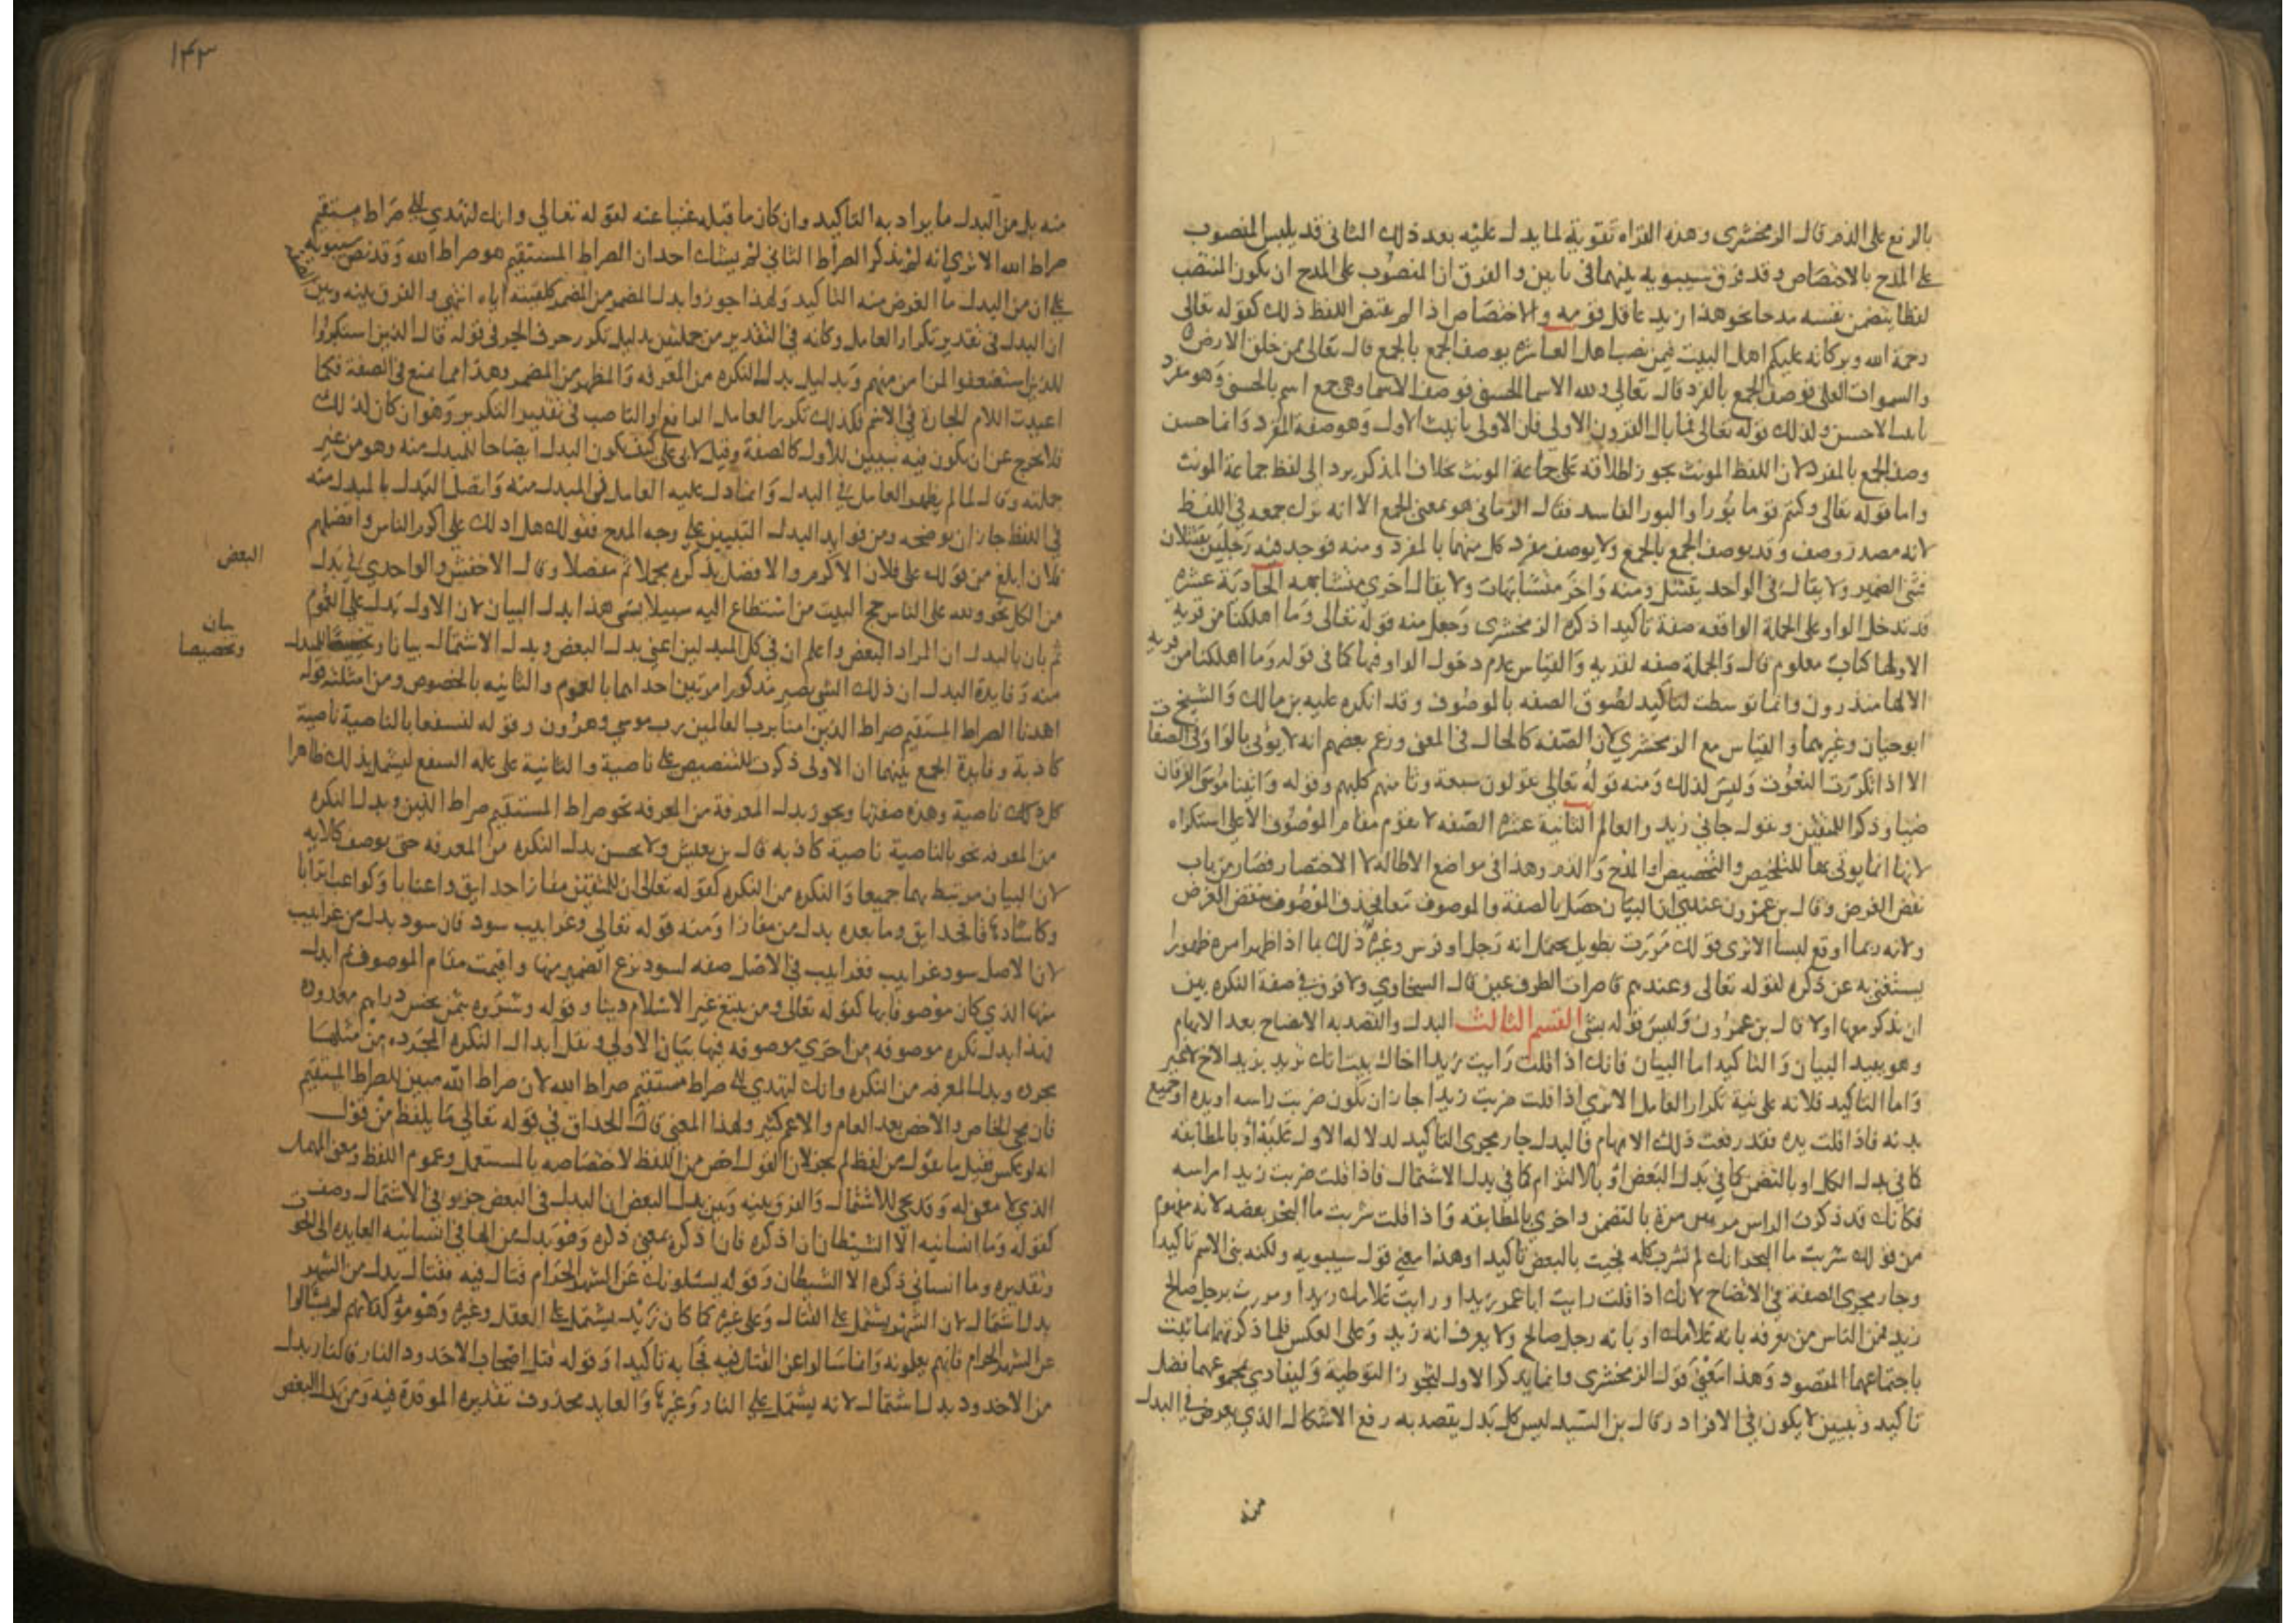 بالرفع على الذم قال الزمخشري وهذه القراه تقوية لما يدل عليه بعد ذلك الثاني قد يلبس المنصوب
على المدح بالاختصاص وقد فرق سيبويه بينهما في بابين والفرق ان المنصوب على المدح ان يكون المنتصب
لفظا يتضمن نفسه مدحا نحو هذا زيد عاقل قومه والاختصاص اذا لم يقتض اللفظ ذلك كقوله تعالى
رحمة الله وبركاته عليكم اهل البيت فيمن نصب اهل العاشرة يوصف الجمع بالجمع قال تعالى ممن خلق الارض
والسموات العلى فوصف الجمع بالفرد قال تعالى ولله الاسما الحسنى فوصف الاسما وهي جمع اسم بالحسنى وهو مفرد
تانيث الاحسن وكذلك قوله تعالى فما بال القرون الاولى فان الاولى تانيث الاول وهو صفة المفرد وانما حسن
وصف الجمع بالمفرد لان اللفظ المونث يجوز اطلاقه على جماعة المونث بخلاف المذكر يرد الى لفظ جماعة المونث
واما قوله تعالى وكنتم قوما بورا والبور الفاسد فقال الرماني هو بمعنى الجمع الا انه ترك جمعه في اللفظ
لانه مصدر وصف وقد يوصف الجمع بالجمع ولا يوصف مفرد كل منهما بالمفرد ومنه فوجد فيه رجلين يقتتلان
فثنى الضمير ولا يقال في الواحد يقتتل ومنه واخر متشابهات ولا يقال اخرى متشابهه الحادية عشرة
قد تدخل الواو على الجملة الواقعه صفة تاكيدا ذكره الزمخشري وجعل منه قوله تعالى وما اهلكنا من قرية
الا ولها كتاب معلوم قال والجملة صفه لقريه والقياس عدم دخول الواو فيها كما في قوله وما اهلكنا من قرية
الا لها منذرون وانما توسطت لتاكيد لصوق الصفه بالموصوف وقد انكره عليه بن مالك والشيخ
ابو حيان وغيرهما والقياس مع الزمخشري لان الصفه كالحال في المعنى وزعم بعضهم انه لا يؤتى بالواو في الصفات
الا اذا تكررت النعوت وليس كذلك ومنه قوله تعالى يقولون سبعة وثامنهم كلبهم وقوله واتينا موسى الفرقان
ضيا وذكرا للمتقين وتقول جاني زيد والعالم الثانية عشرة الصفه لا تقوم مقام الموصوف الا على استكراه
لانها انما يوتى بها للتلخيص والتخصيص او المدح والذم وهذا في مواضع الاطاله لا الاختصار فصار من باب
نقض الغرض وقال بن عمرون عندي ان البيان حصل بالصفة والموصوف معا فحذف الموصوف ينقض الغرض
ولانه ربما اوقع لبسا الا ترى قولك مررت بطويل يحتمل انه رجل او قوس وغير ذلك بما اذا ظهر امره ظهورا
يستغنى به عن ذكره لقوله تعالى وعندهم قاصرات الطرف عين قال السخاوي ولا فرق في صفة النكره بين
ان يذكر معها اولا قال بن عمرون وليس قوله بشئ القسم الثالث البدل والقصد به الايضاح بعد الابهام
وهو يفيد البيان والتاكيد اما البيان فانك اذا قلت رايت زيدا اخاك بينت انك تريد بزيد الاخ لا غير
واما التاكيد فلانه على نية تكرار العامل الا ترى اذا قلت ضربت زيدا جاز ان يكون ضربت راسه او يده او جميع
بدنه فاذا قلت يده فقد رفعت ذلك الابهام فالبدل جار مجرى التاكيد لدلاله الاول عليه او بالمطابقه
كما في بدل الكل او بالتضمن كما في بدل البعض او بالالتزام كما في بدل الاشتمال فاذا قلت ضربت زيدا راسه
فكانك قد ذكرت الراس مرتين مرة بالتضمن واخرى بالمطابقه واذا قلت شربت ما البحر بعضه لانه مفهوم
من قولك شربت ما البحر انك لم تشرب كله فجيت بالبعض تاكيدا وهذا معنى قول سيبويه ولكنه بنى الاسم تاكيدا
وجار مجرى الصفة في الايضاح لانك اذا قلت رايت ابا عمرو زيدا ورايت غلامك زيدا ومررت برجل صالح
زيد فمن الناس من يعرفه بانه غلامك او بانه رجل صالح ولا يعرف انه زيد وعلى العكس فلما ذكرتهما اثبت
باجتماعهما المقصود وهذا معنى قول الزمخشري وانما يذكر الاول لتجوز التوطية وليفاد بمجموعهما فضل
تاكيد وتبيين لا يكون في الافراد وقال بن السيد ليس كل بدل يقصد به رفع الاشكال الذي يعرض في البدل
منه
١٤٣
منه بل من البدل ما يراد به التاكيد وان كان ما قبله غنيا عنه لقوله تعالى وانك لتهدي الى صراط مستقيم
صراط الله الا ترى انه لو لم يذكر الصراط الثاني لم يشك احد ان الصراط المستقيم هو صراط الله وقد نص سيبويه
على ان من البدل ما الغرض منه التاكيد ولهذا جوزوا بدل المضمر من المضمر كلقيته اياه انتهى والفرق بينه وبين الصفة
ان البدل في تقدير تكرار العامل وكانه في التقدير من جملتين بدليل تكرر حرف الجر في قوله قال الذين استكبروا
للذين استضعفوا لمن امن منهم وبدليل بدل النكره من المعرفه والمظهر من المضمر وهذا مما يمتنع في الصفة فكما
اعيدت اللام الجارة في الاسم فكذلك تكرر العامل الرافع او الناصب في تقدير التكرير وهو ان كان كذلك
فلا يخرج عن ان يكون فيه تبيين للاول كالصفة وقيل لابي على كيف يكون البدل ايضاحا للمبدل منه وهو من غير
جملته فقال لما لم يظهر العامل في البدل وانما دل عليه العامل في المبدل منه واتصل البدل بالمبدل منه
في اللفظ جاز ان يوضحه ومن فوايد البدل التبيين على وجه المدح فقولك هل ادلك على اكرم الناس وافضلهم
فلان ابلغ من قولك على فلان الاكرم والافضل بذكره مجملا ثم مفصلا وقال الاخفش والواحدي في بدل البعض
من الكل نحو ولله على الناس حج البيت من استطاع اليه سبيلا يسمى هذا بدل البيان لان الاول يدل على العموم
ثم بان بالبدل ان المراد البعض واعلم ان في كل المبدلين اعني بدل البعض وبدل الاشتمال بيانا وتخصيصا للمبدل
بيان
وتخصيصا
منه وفايدة البدل ان ذلك الشي يصير مذكورا مرتين احداهما بالعموم والثانيه بالخصوص ومن امثلته قوله
اهدنا الصراط المستقيم صراط الذين امنا برب العالمين رب موسى وهرون وقوله لنسفعا بالناصية ناصية
كاذبة وفايدة الجمع بينهما ان الاولى ذكرت للتنصيص على ناصية والثانية على علة السفع ليشمل بذلك ظاهرا
كل ناصية وهذه صفتها ويجوز بدل المعرفة من المعرفه نحو صراط المستقيم صراط الذين وبدل النكره
من المعرفه نحو بالناصية ناصية كاذبه قال بن يعيش ولا يحسن بدل النكره من المعرفه حتى يوصف كالايه
لان البيان مرتبط بهما جميعا والنكره من النكره كقوله تعالى ان للمتقين مفازا حدايق واعنابا وكواعب اترابا
وكاسا دهاقا فحدايق وما بعده بدل من مفازا ومنه قوله تعالى وغرابيب سود فان سود بدل من غرابيب
لان الاصل سود غرابيب فغرابيب في الاصل صفه لسود نزع الضمير منها واقيمت مقام الموصوف ثم ابدل
منها الذي كان موصوفا بها كقوله تعالى ومن يبتغ غير الاسلام دينا وقوله وشروه بثمن بخس دراهم معدوده
فهذا بدل نكره موصوفه من اخرى موصوفه فيها بيان الاولى وتقل ابدال النكره المجرده من مثلها
مجرده وبدل المعرفه من النكره وانك لتهدي الى صراط مستقيم صراط الله لان صراط الله مبين للصراط المستقيم
فان مجي الخاص والاخص بعد العام والاعم كثير ولهذا المعنى قال الحذاق في قوله تعالى ما يلفظ من قول
انه لو عكس فقيل ما يقول من لفظ لم يجز لان القول اخص من اللفظ لاختصاصه بالمستعمل وعموم اللفظ ومعنى المهمل
الذي لا معنى له وقد يجي للاشتمال والفرق بينه وبين بدل البعض ان البدل في البعض جزو وفي الاشتمال وصف
كقوله وما انسانيه الا الشيطان ان اذكره فان اذكره بمعنى ذكره وهو بدل من الها في انسانيه العايده الى الحوت
وتقديره وما انساني ذكره الا الشيطان وقوله يسئلونك عن الشهر الحرام قتال فيه فقتال بدل من الشهر
بدل اشتمال لان الشهر يشتمل على القتال وعلى غيره كما كان زيد يشتمل على العقل وغيره وهو مؤكد لانهم لم يسالوا
عن الشهر الحرام فانهم يعلمونه وانما سالوا عن القتال فيه فجا به تاكيدا وقوله قتل اصحاب الاخدود النار فالنار بدل
من الاخدود بدل اشتمال لانه يشتمل على النار وغيرها والعايد محذوف تقديره الموقدة فيه ومن بدل البعض